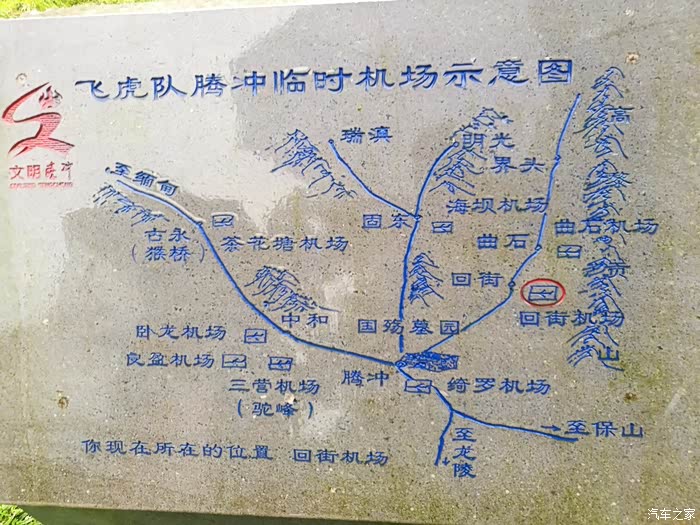 飞虎队腾冲临时机场示意图
文明腾冲
瑞滇
明光
界头
高
黎
贡
山
至缅甸
固东
海坝机场
曲石
曲石机场
古永
(猴桥)
茶花塘机场
回街
回街机场
中和
国殇墓园
卧龙机场
良盈机场
三营机场
(驼峰)
腾冲
绮罗机场
至保山
至龙陵
你现在所在的位置 回街机场
汽车之家